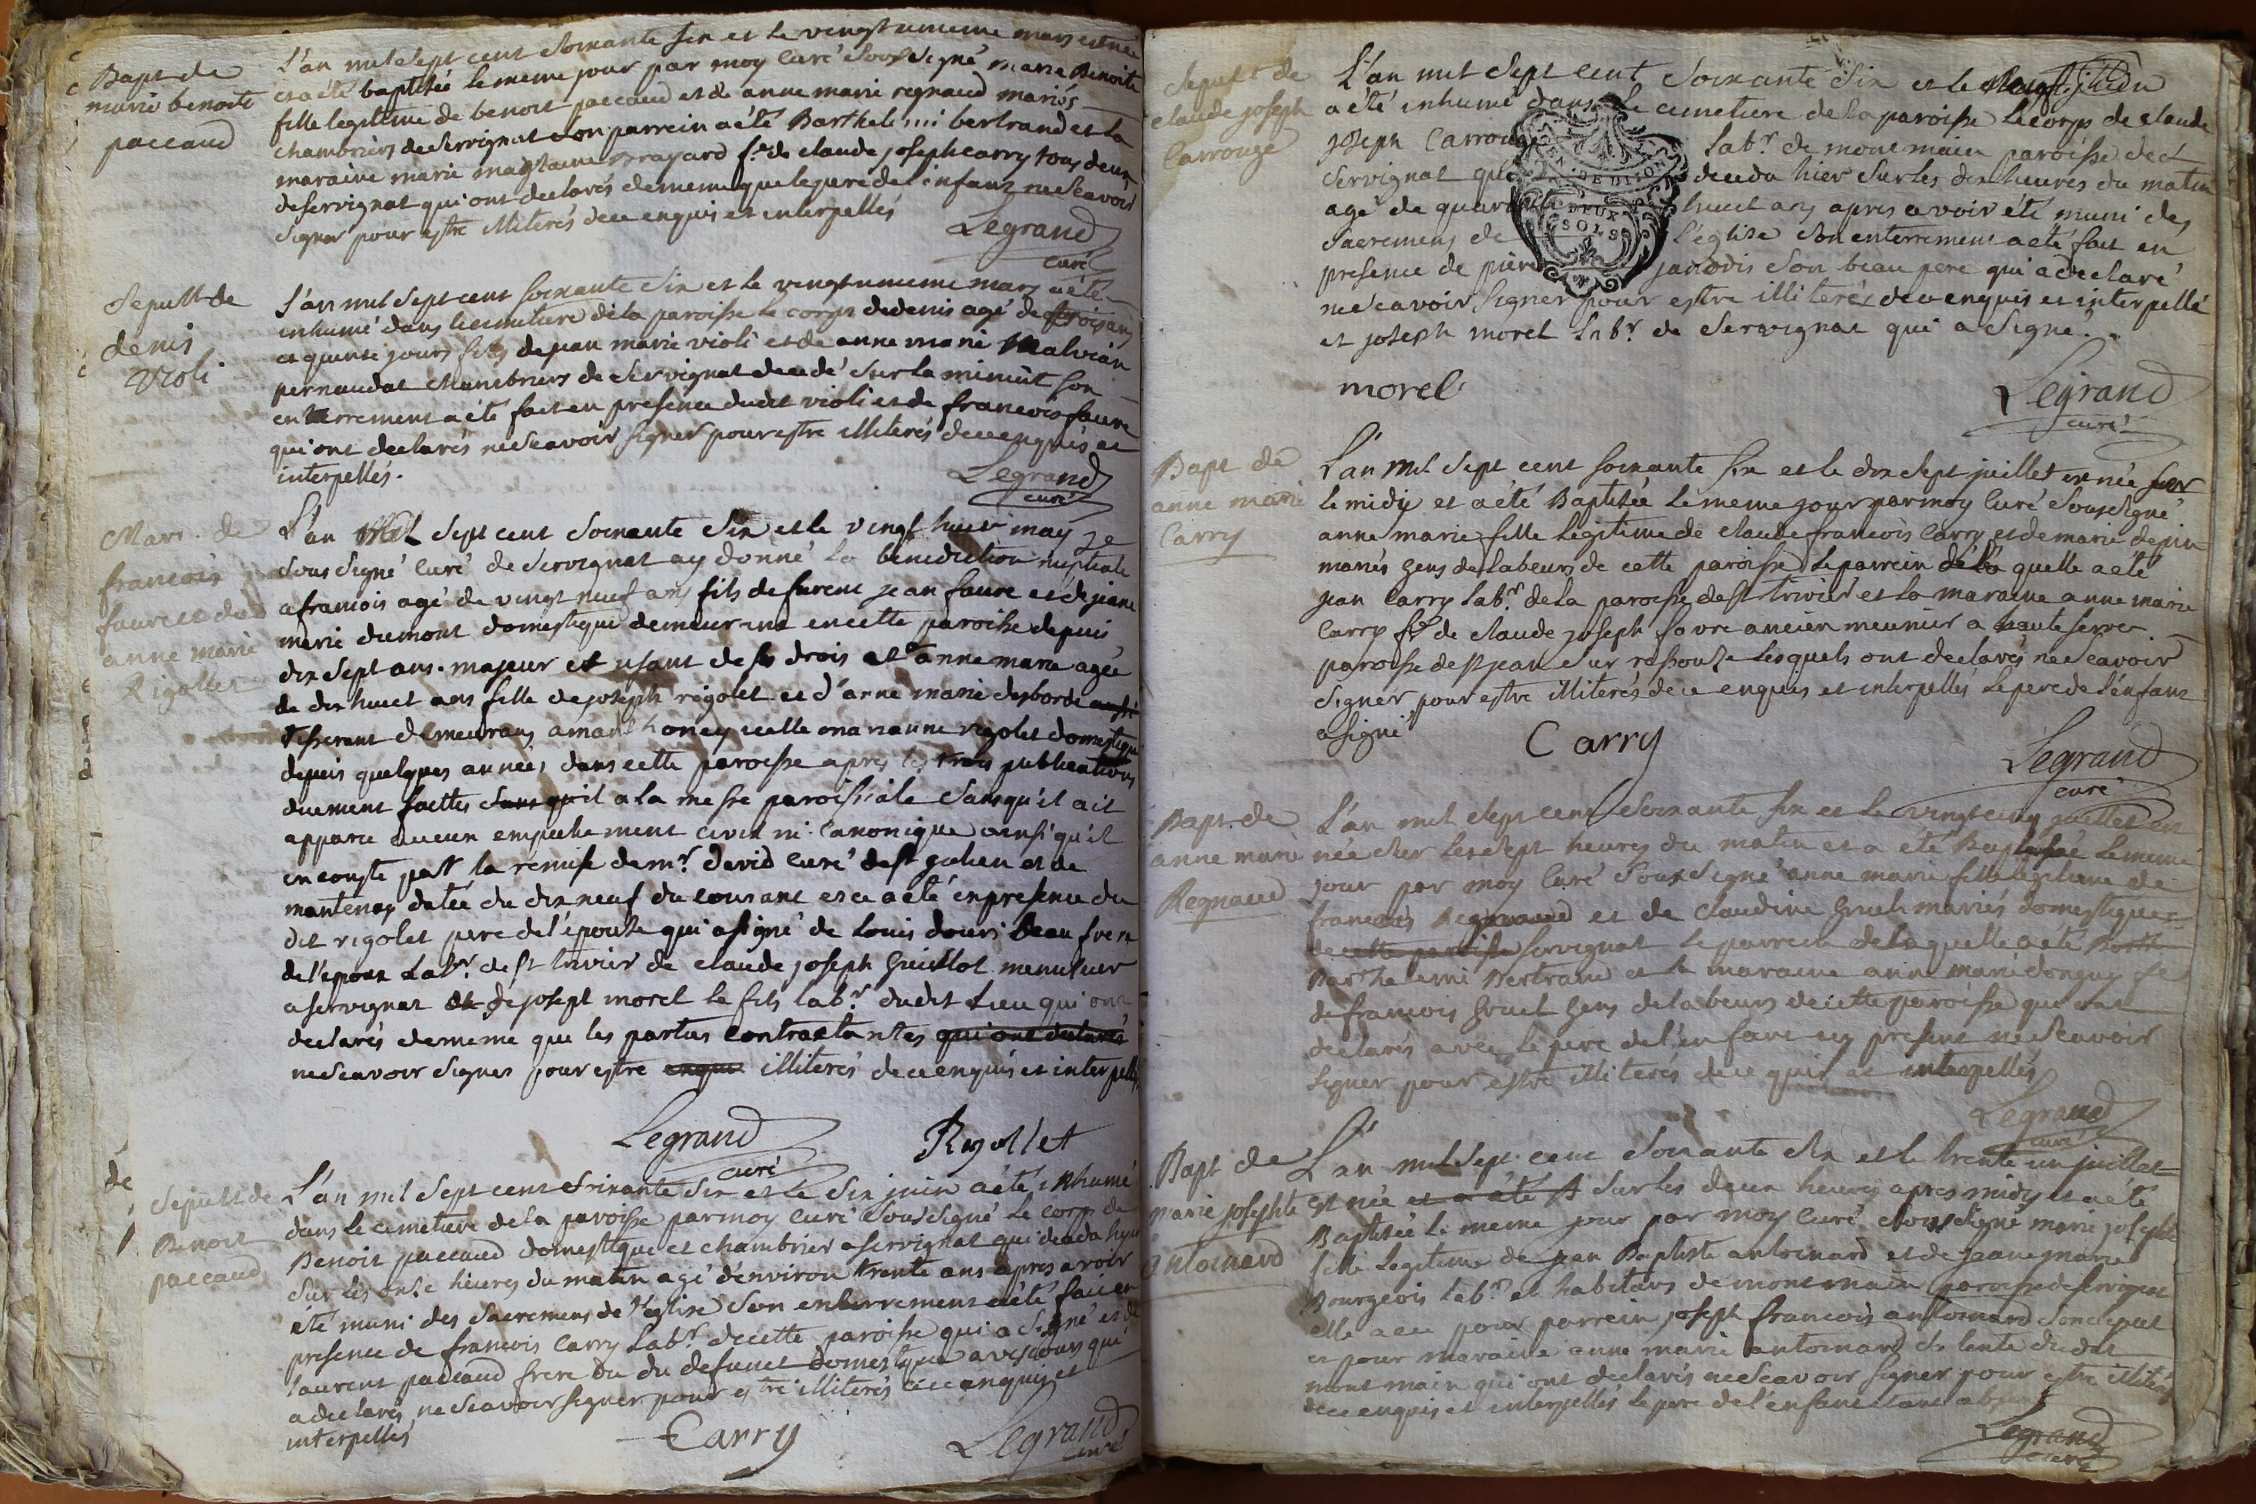 Bapt de
marie benoite
paccaud
L'an mil sept cent soixante six et le vingt unieme mars est née
et a été baptisée le meme jour par moy curé soussigné marie Benoite
fille legitime de benoit paccaud et de anne marie regnaud mariés
chambriers de Servignat son parrein a été Barthelemi bertrand et la
maraine marie magdlaine brayard fe de claude joseph carry tous deux
de servignat qui ont declarés de meme que le pere de l'enfant ne scavoir
signer pour estre illiterés de ce enquis et interpellés
Legrand
curé
Sepult de
denis
violi
L'an mil sept cent soixante six et le vingt unieme mars a été
inhumé dans le cimetiere de la paroisse le corps de denis agé de trois ans
et quinse jours fils de jean marie violi et de anne marie Malvian
pernaudat chambriers de Servignat decedé sur la minuit son
enterrement a été fait en presence dudit violi et de francois faure
qui ont declarés ne scavoir signer pour estre illiterés de ce enquis et
interpellés.
Legrand
curé
Mari. de
francois
faure et de
anne marie
Rigollet
L'an Mil sept cent soixante six et le vingt huit may je
sous signé curé de Servignat ay donné la benediction nuptiale
a francois agé de vingt neuf ans fils de furent jean faure et de jeane
marie dumont domestique demeurant en cette paroisse depuis
dix sept ans. majeur et usant de ses drois et a anne marie agée
de dix huit ans fille de joseph rigolet et d'anne marie desborde aussi
tisserent demeurans a mantenay icelle marianne rigolet domestique
depuis quelques années dans cette paroisse apres les trois publications
duement faittes sans qu'il a la messe paroissiale sans qu'il ait
apparu aucun empechement civil ni canonique ainsi qu'il
en conste par la remise de mr. david curé de st julien et de
mantenay datée du dix neuf du courant et ce a été en presence du
dit rigolet pere de l'épouse qui a signé de Louis douri beau frere
de l'epoux Labr. de st trivier de claude joseph Guillot menusier
a servignat et de josept morel le fils labr. dudit Lieu qui ont
declarés de meme que les parties contractantes qui ont declarés
ne scavoir signer pour estre enquis illiterés de ce enquis et interpellés
Legrand
curé
Rigollet
Sepult de
Benoit
paccaud
L'an mil sept cent soixante six et le six juin a été inhumé
dans le cimetiere de la paroisse par moy curé sous signé le corps de
Benoit paccaud domestique et chambrier a servignat qui deceda hyer
sur les onze heures du matin agé d'environ trente ans apres avoir
été muni des sacremens de l'église son enterrement a été fait en
presence de francois Carry Labr. de cette paroisse qui a signé et de
laurent paccaud frere du du defunct domestique a vescours qui
a declarés ne scavoir signer pour estre illiterés de ce enquis et
interpellés
Carry
Legrand
curé
Sepult de
claude joseph
Carrouge
L'an mil sept cent soixante six et le
a été inhumé dans le cimetiere de la paroisse le corps de claude
joseph Carrouge Labr. de montmain paroisse de
Servignat qui deceda hier sur les dix heures du matin
agé de quarante huit ans apres avoir été muni des
sacremens de l'église son enterrement a été fait en
presence de piere janodis son beau pere qui a declaré
ne scavoir signer pour estre illiterés de ce enquis et interpellé
et joseph morel Labr. de Servignat qui a signé.
GEN. DE DIJON
DEUX
SOLS
morel
Legrand
curé
Bapt de
anne marie
Carry
L'an Mil sept cent soixante six et le dix sept juillet est née sur
le midy et a été Baptisée le meme jour par moy curé soussigné
anne marie fille legitime de claude francois Carry et de marie depin
mariés gens de labeurs de cette paroisse le parrein de la quelle a été
jean Carry Labr. de la paroisse de st trivier et la maraine anne marie
Carry fe de claude joseph favre ancien meunier a hauteserve
paroisse de st jean sur ressouze lesquels ont declarés ne scavoir
signer pour estre illiterés de ce enquis et interpellés le pere de l'enfant
a signé
Carry
Legrand
curé
Bapt. de
anne marie
Regnaud
L'an mil sept cent soixante six et le vingt cinq juillet est
née sur les sept heures du matin et a été Baptisée le meme
jour par moy curé soussigné anne marie fille legitime de
francois Regnaud et de Claudine Gruel mariés domestiques
de cette paroisse servignat le parrein de la quelle a été Barth
Barthelemi Bertrand et la maraine anne marie donguy fe
de francois Gruel gens de labeurs de cette paroisse qui ont
declarés avec le pere de l'enfant icy present ne scavoir
signer pour estre illiterés de ce quis et interpellés
Legrand
curé
Bapt de
marie josephte
antoinard
L'an mil sept cent soixante six et le trente un juillet
est née et a été b sur les deux heures apres midy et a été
Baptisée le meme jour par moy curé soussigné marie josephte
fille legitime de jean Baptiste antoinard et de jeane marie
Bourgeois Labr. et habitans de montmain paroisse de servignat
elle a eu pour parrein joseph francois antoinard
et pour maraine anne marie antoinard sa tante dudit
mont main qui ont declarés ne scavoir signer pour estre illiterés
de ce enquis et interpellés le pere de l'enfant etant absent
Legrand
curé